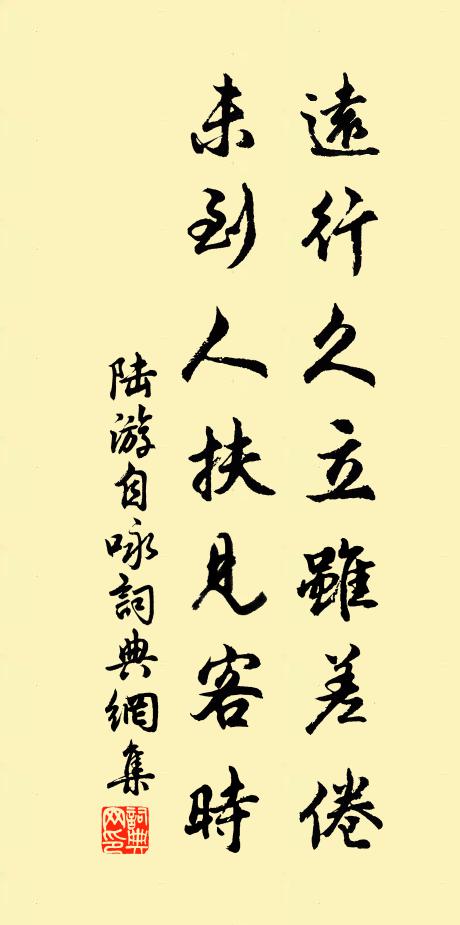 遠行久立雖差倦
未到人扶見客時
陆游自咏詞典網集
詞典網印